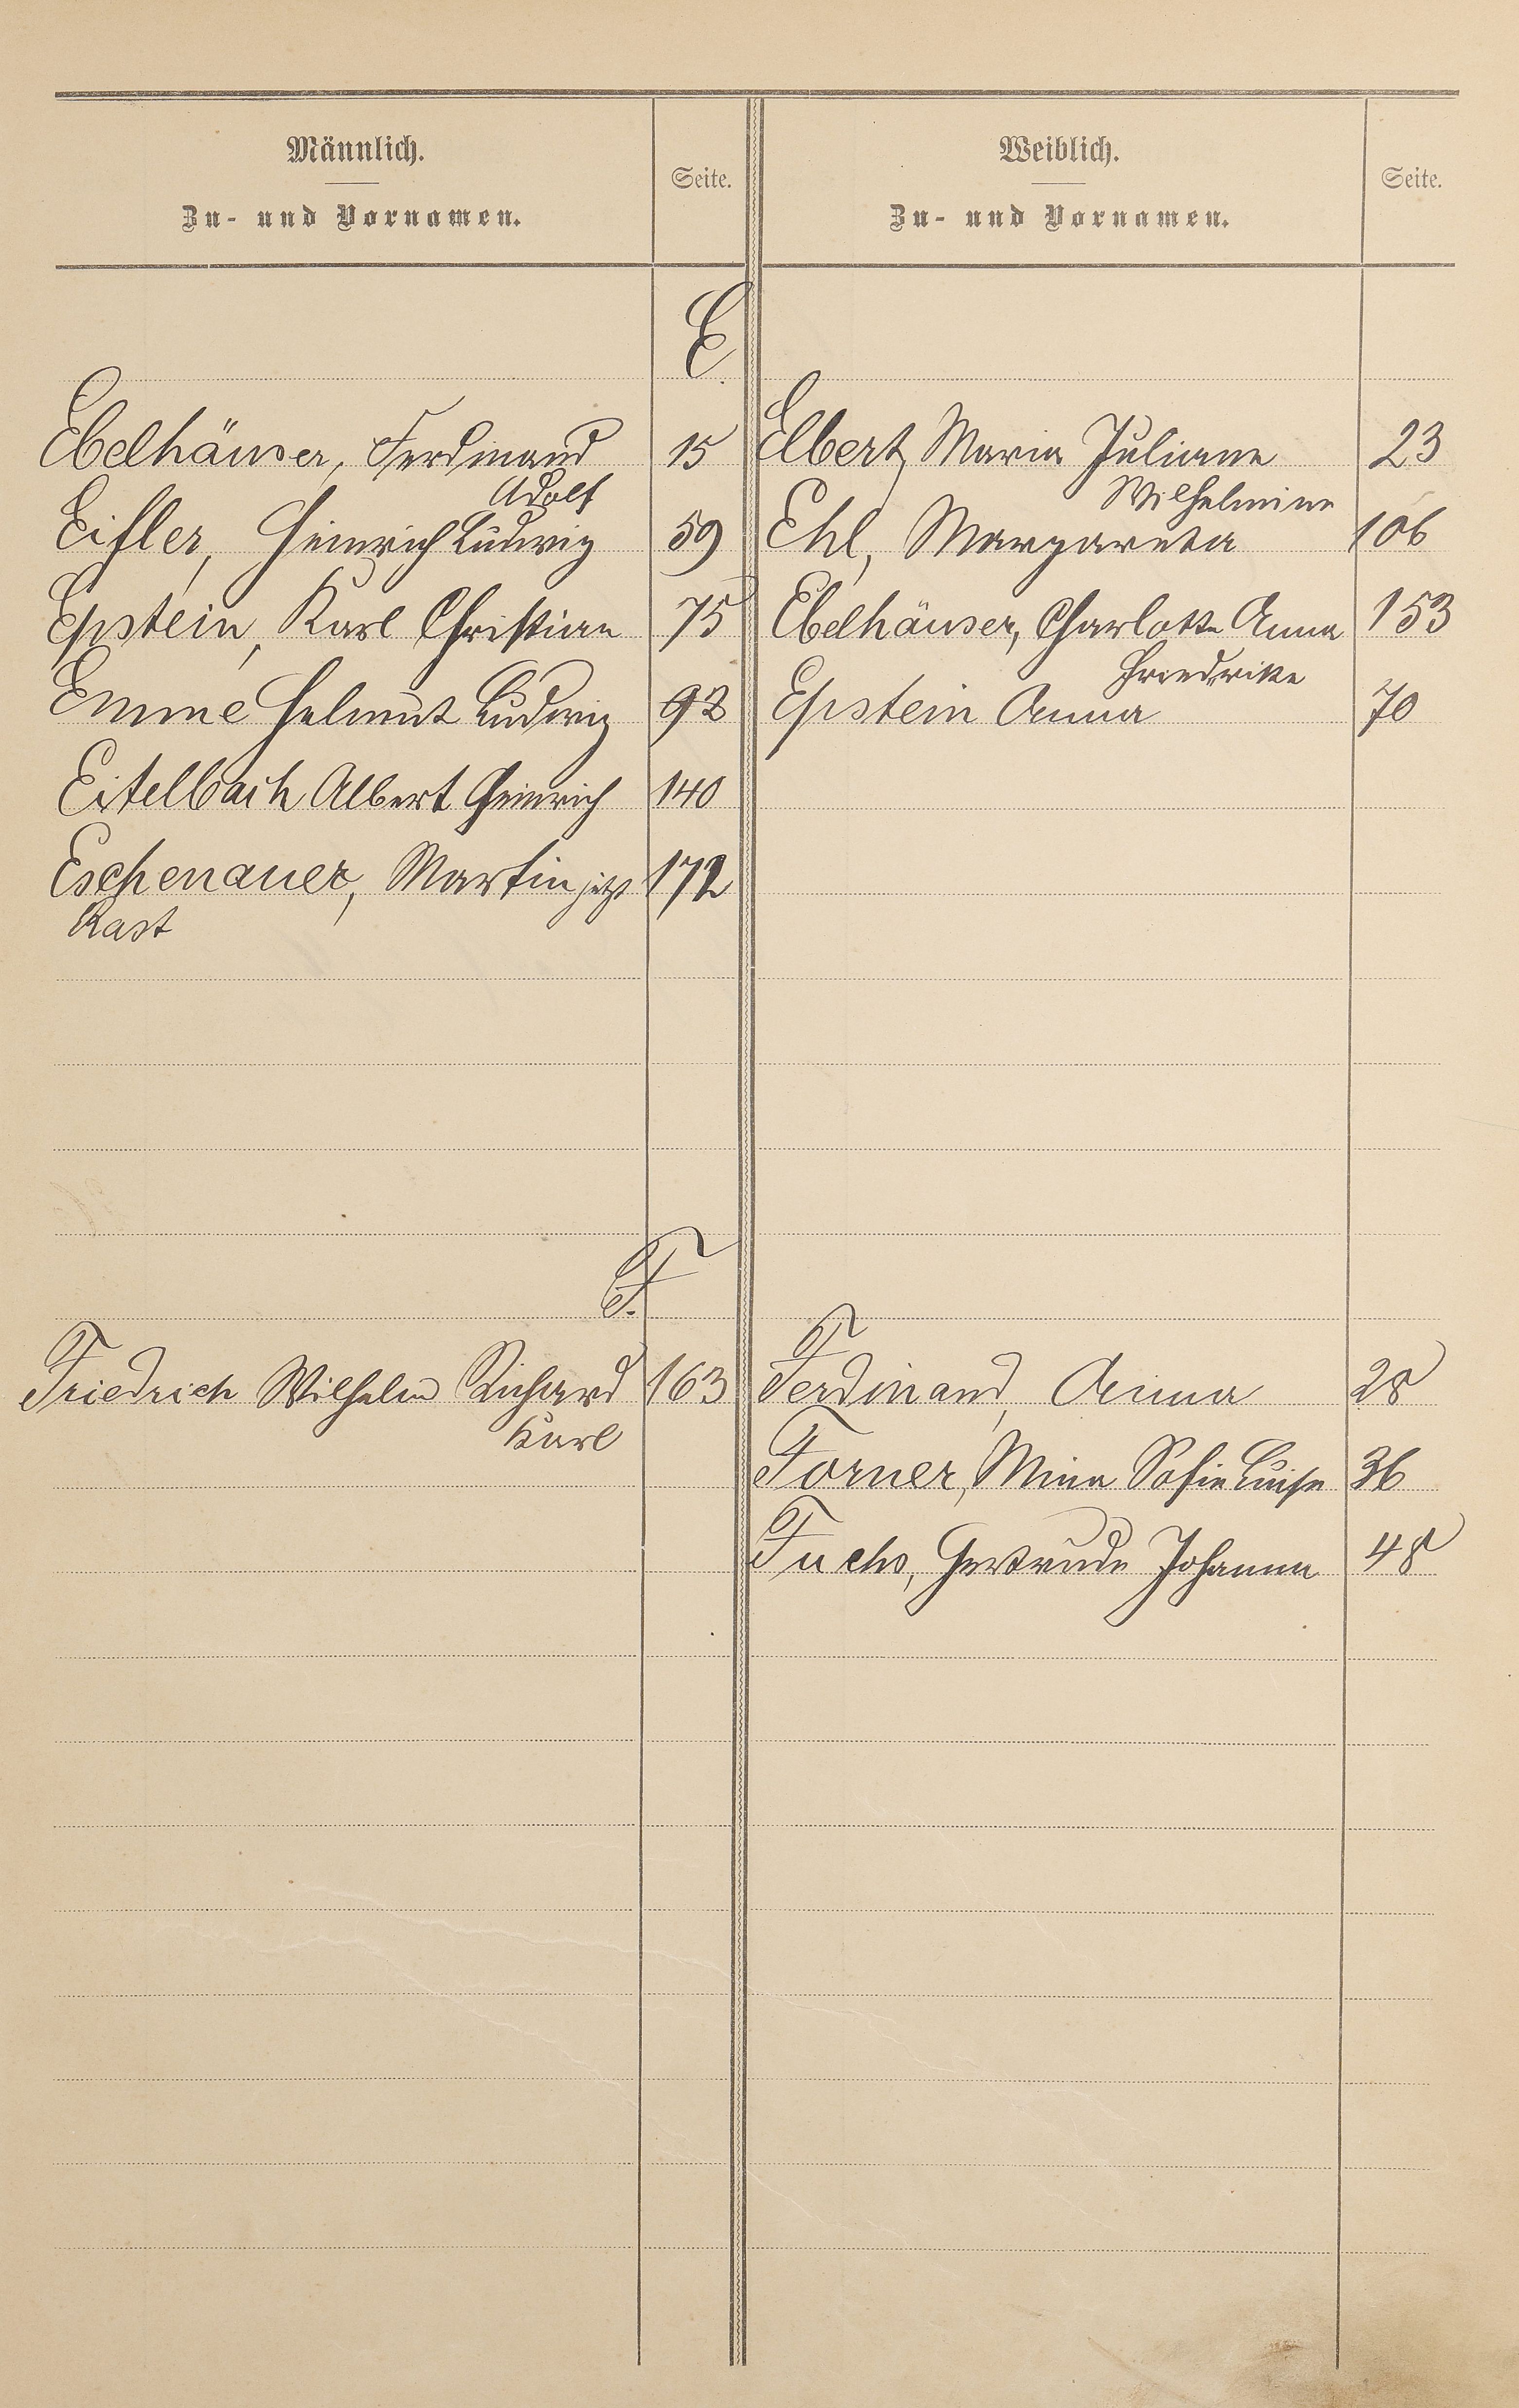 Männlich.
Zu- und Vornamen.
Seite.
Weiblich.
Zu- und Vornamen.
Seite.
E
Ebelhäuser, Ferdinand 15
Adolf
Eifler, Heinrich Ludwig 59
Epstein, Karl Christian 75
Emme Helmut Ludwig 92
Eitelbach Albert Heinrich 140
Eschenauer, Martin jetzt 172
Rast
Elbert, Maria Juliane 23
Wilhelmine
Ehl, Margareta 106
Ebelhäuser, Charlotte Anna 153
Friedrike
Epstein Anna 70
F.
Friedrich Wilhelm Richard 163
Karl
Ferdinand, Anna 28
Forner, Mina Sofie Luise 36
Fuchs, Gertrude Johanna 48